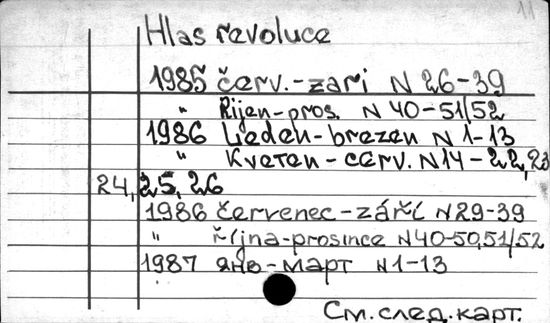 11
Hlas řevoluce
1985 červ.-zaři N 26-39
" Rijen-pros. N 40-51/52
1986 Leden-brezen N 1-13
" Kveten-cerv. N14-22,23
24,25,26
1986 červenec-září N29-39
" října-prosince N40-50,51/52
1987 янв-март N1-13
См.след.карт.